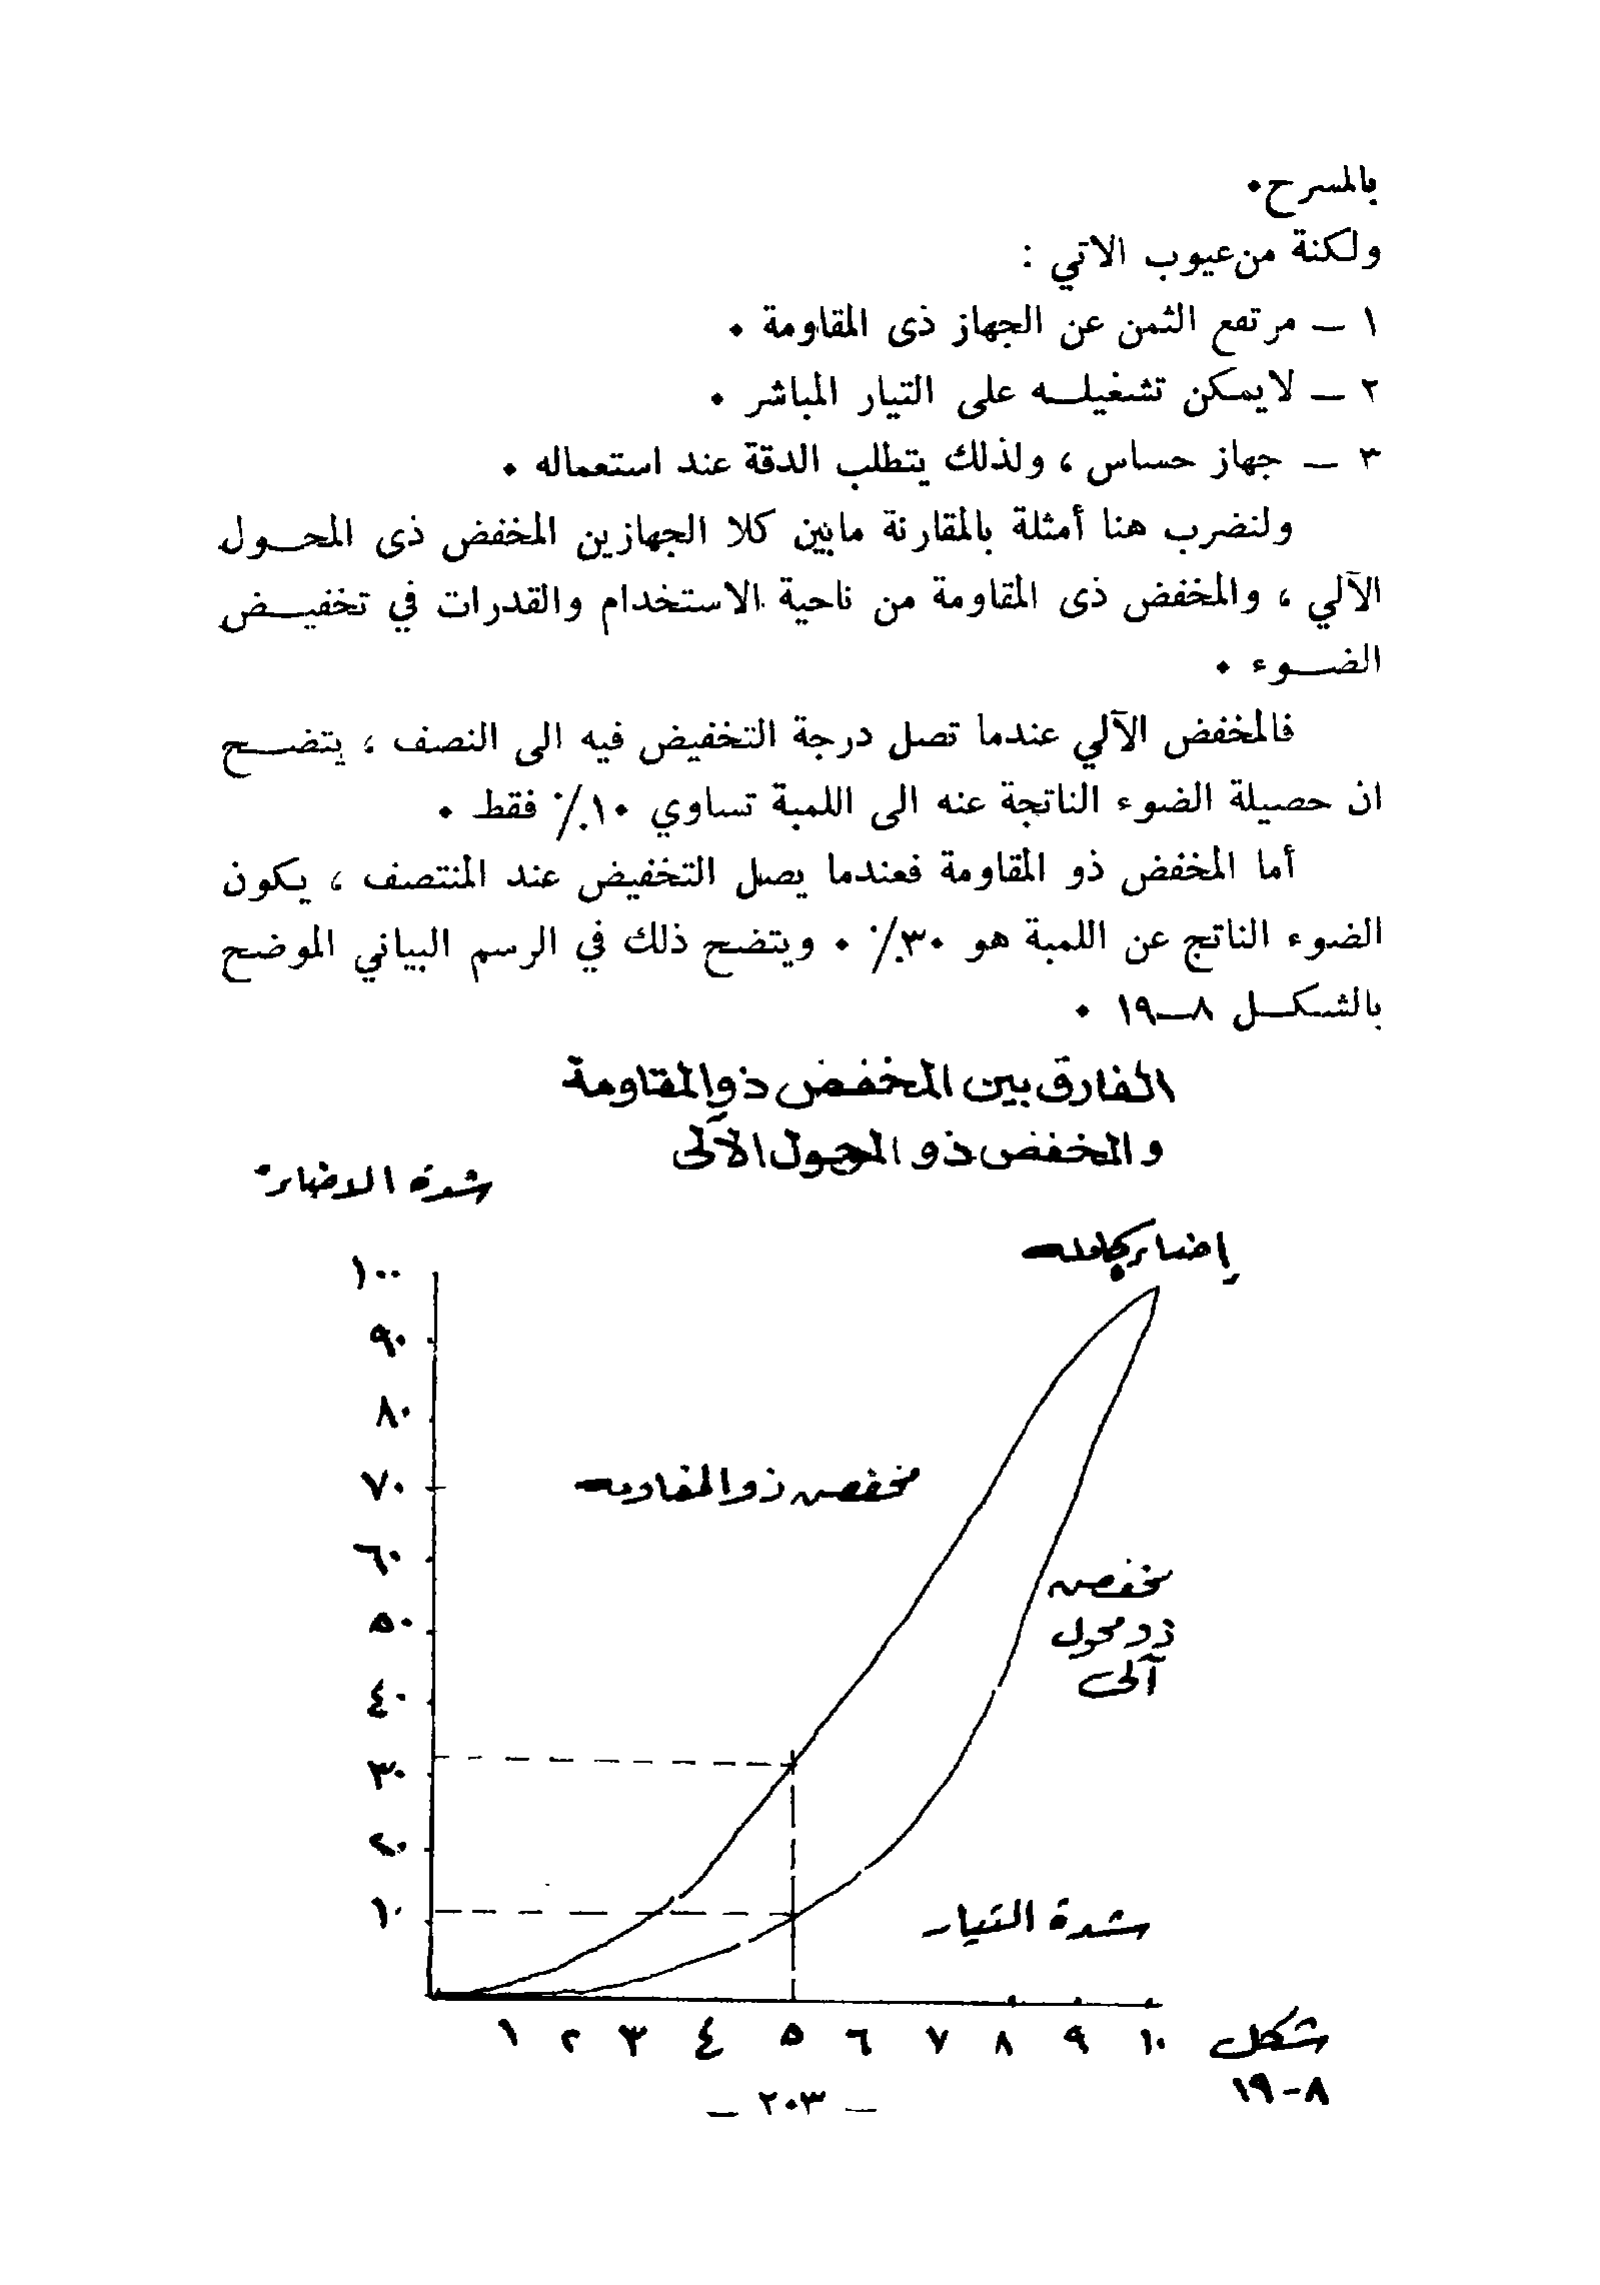 بالمسرح٠
ولكنة من عيوب الاتي :
١ — مرتفع الثمن عن الجهاز ذى المقاومة ٠
٢ — لايمكن تشغيلـــه على التيار المباشر ٠
٣ — جهاز حساس ، ولذلك يتطلب الدقة عند استعماله ٠
ولنضرب هنا أمثلة بالمقارنة مابين كلا الجهازين المخفض ذى المحـــول
الآلي ، والمخفض ذى المقاومة من ناحية الاستخدام والقدرات في تخفيـــض
الضـــوء ٠
فالمخفض الآلي عندما تصل درجة التخفيض فيه الى النصف ، يتضـــح
ان حصيلة الضوء الناتجة عنه الى اللمبة تساوي ١٠٪ فقط ٠
أما المخفض ذو المقاومة فعندما يصل التخفيض عند المنتصف ، يكون
الضوء الناتج عن اللمبة هو ٣٠٪ ٠ ويتضح ذلك في الرسم البياني الموضح
بالشكـــل ٨—١٩ ٠
الفارق بين المخفض ذو المقاومة
والمخفض ذو المحول الآلى
شدة الاضاءة
إضاءة كاملة
١٠٠
٩٠
٨٠
٧٠
مخفض ذو المقاومة
٦٠
مخفض
ذو محول
آلى
٥٠
٤٠
٣٠
٢٠
١٠
شدة التيار
١ ٢ ٣ ٤ ٥ ٦ ٧ ٨ ٩ ١٠
شكل
٨-١٩
— ٢٠٣ —